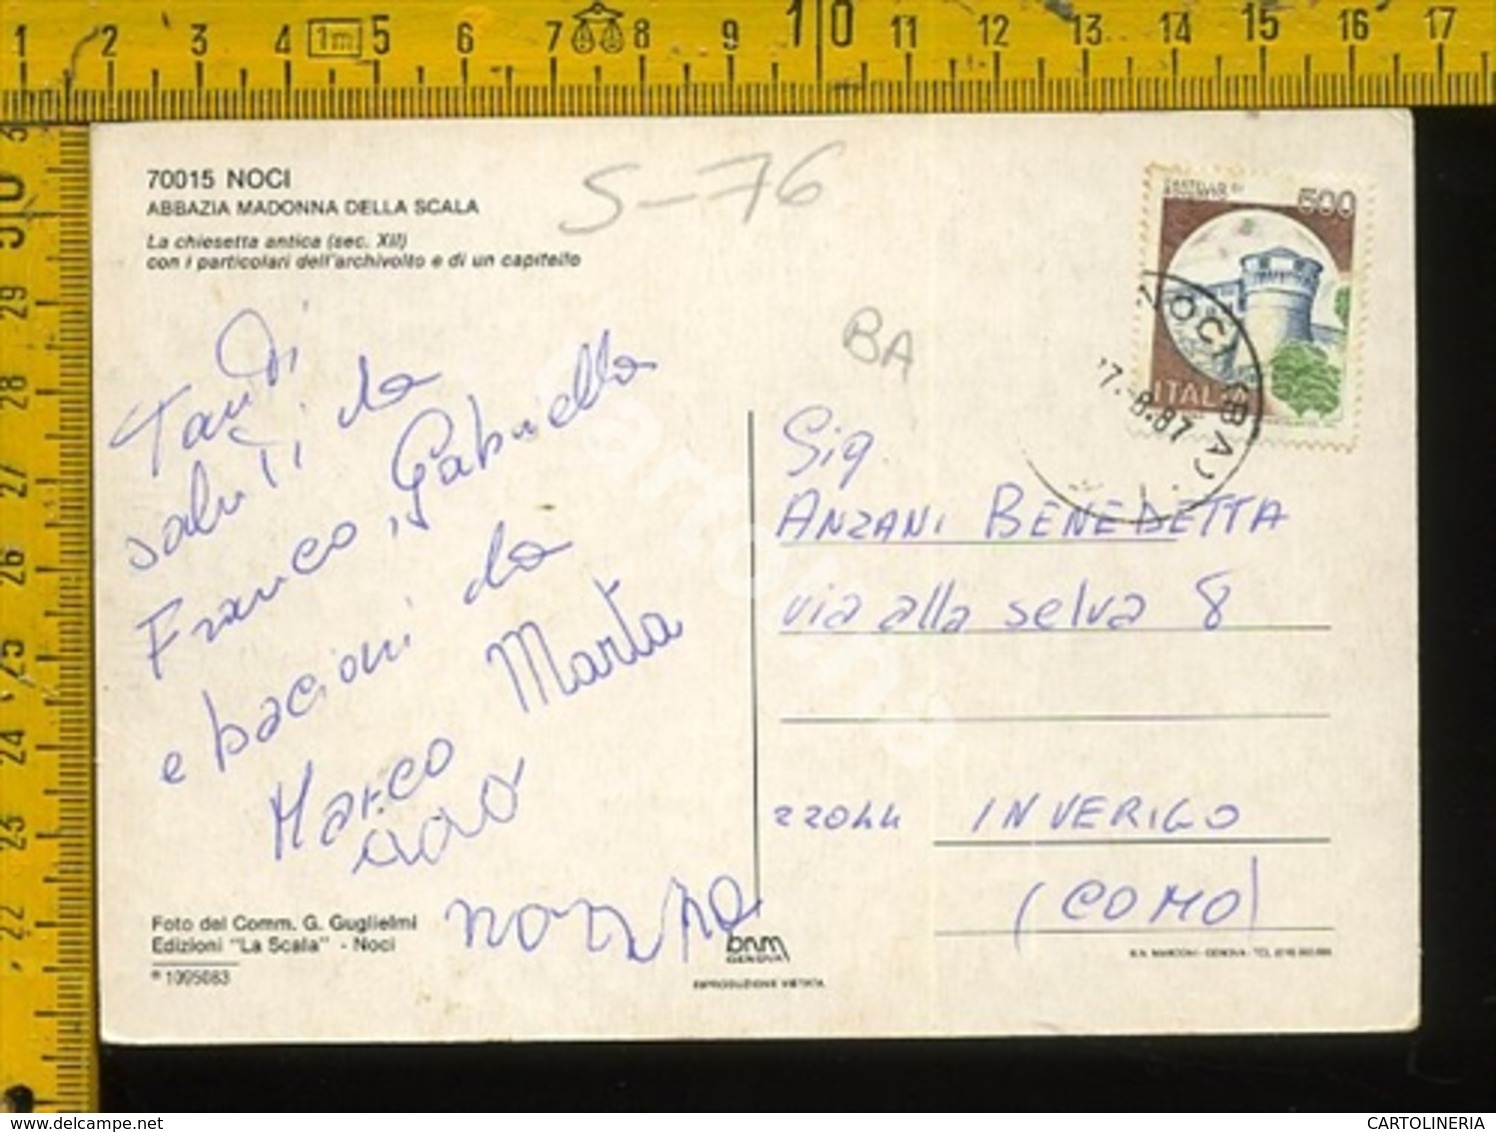 1 2 3 4 1m 5 6 7 8 9 10 11 12 13 14 15 16 17
30 29 28 27 26 25 24 23 22
70015 NOCI
ABBAZIA MADONNA DELLA SCALA
La chiesetta antica (sec. XII)
con i particolari dell'archivolto e di un capitello
S-76
BA
500
ITALIA
NOCI (BA)
7.-8.87
Tanti
saluti da
Franco, Gabriella
e bacioni da
Marco Marta
ciao
Sig.
ANZANI BENEDETTA
via alla selva 8
22044 INVERIGO
(COMO)
Foto del Comm. G. Guglielmi
Edizioni "La Scala" - Noci
bnm
GENOVA
RIPRODUZIONE VIETATA
www.delcampe.net
CARTOLINERIA